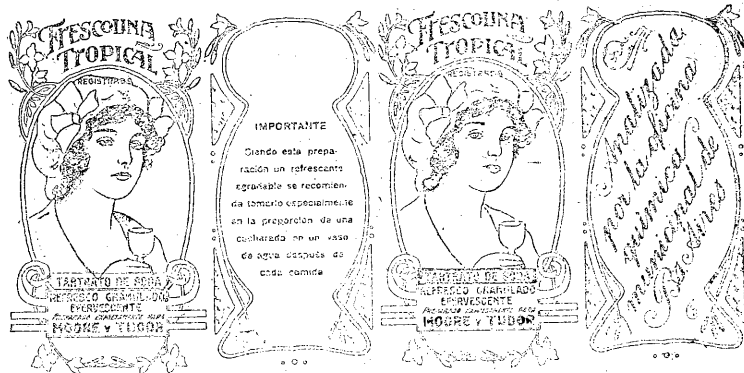 FRESCOLINA
TROPICAL
REGISTRADA
TARTRATO DE SODA
REFRESCO GRANULADO
EFERVESCENTE
PREPARADO ESPECIALMENTE PARA
MOORE Y TUDOR
IMPORTANTE
Siendo esta prepa-
ración un refrescante
agradable se recomien-
da tomarlo especialmente
en la proporción de una
cucharada en un vaso
de agua después de
cada comida
FRESCOLINA
TROPICAL
REGISTRADA
TARTRATO DE SODA
REFRESCO GRANULADO
EFERVESCENTE
PREPARADO ESPECIALMENTE PARA
MOORE Y TUDOR
Analizada
por la oficina
química
municipal de
Bs. Aires